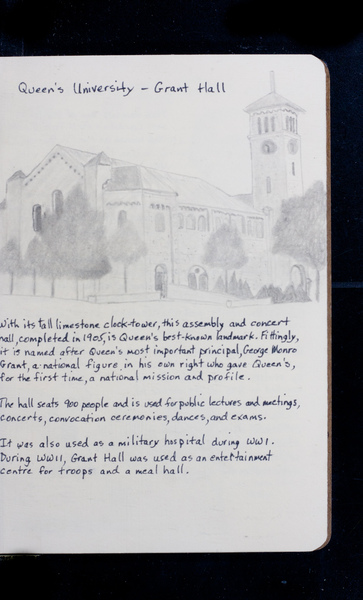 Queen's University – Grant Hall
With its tall limestone clock-tower, this assembly and concert
hall, completed in 1905, is Queen's best-known landmark. Fittingly,
it is named after Queen's most important principal, George Monro
Grant, a national figure in his own right who gave Queen's,
for the first time, a national mission and profile.
The hall seats 900 people and is used for public lectures and meetings,
concerts, convocation ceremonies, dances, and exams.
It was also used as a military hospital during WW1.
During WWII, Grant Hall was used as an entertainment
centre for troops and a meal hall.